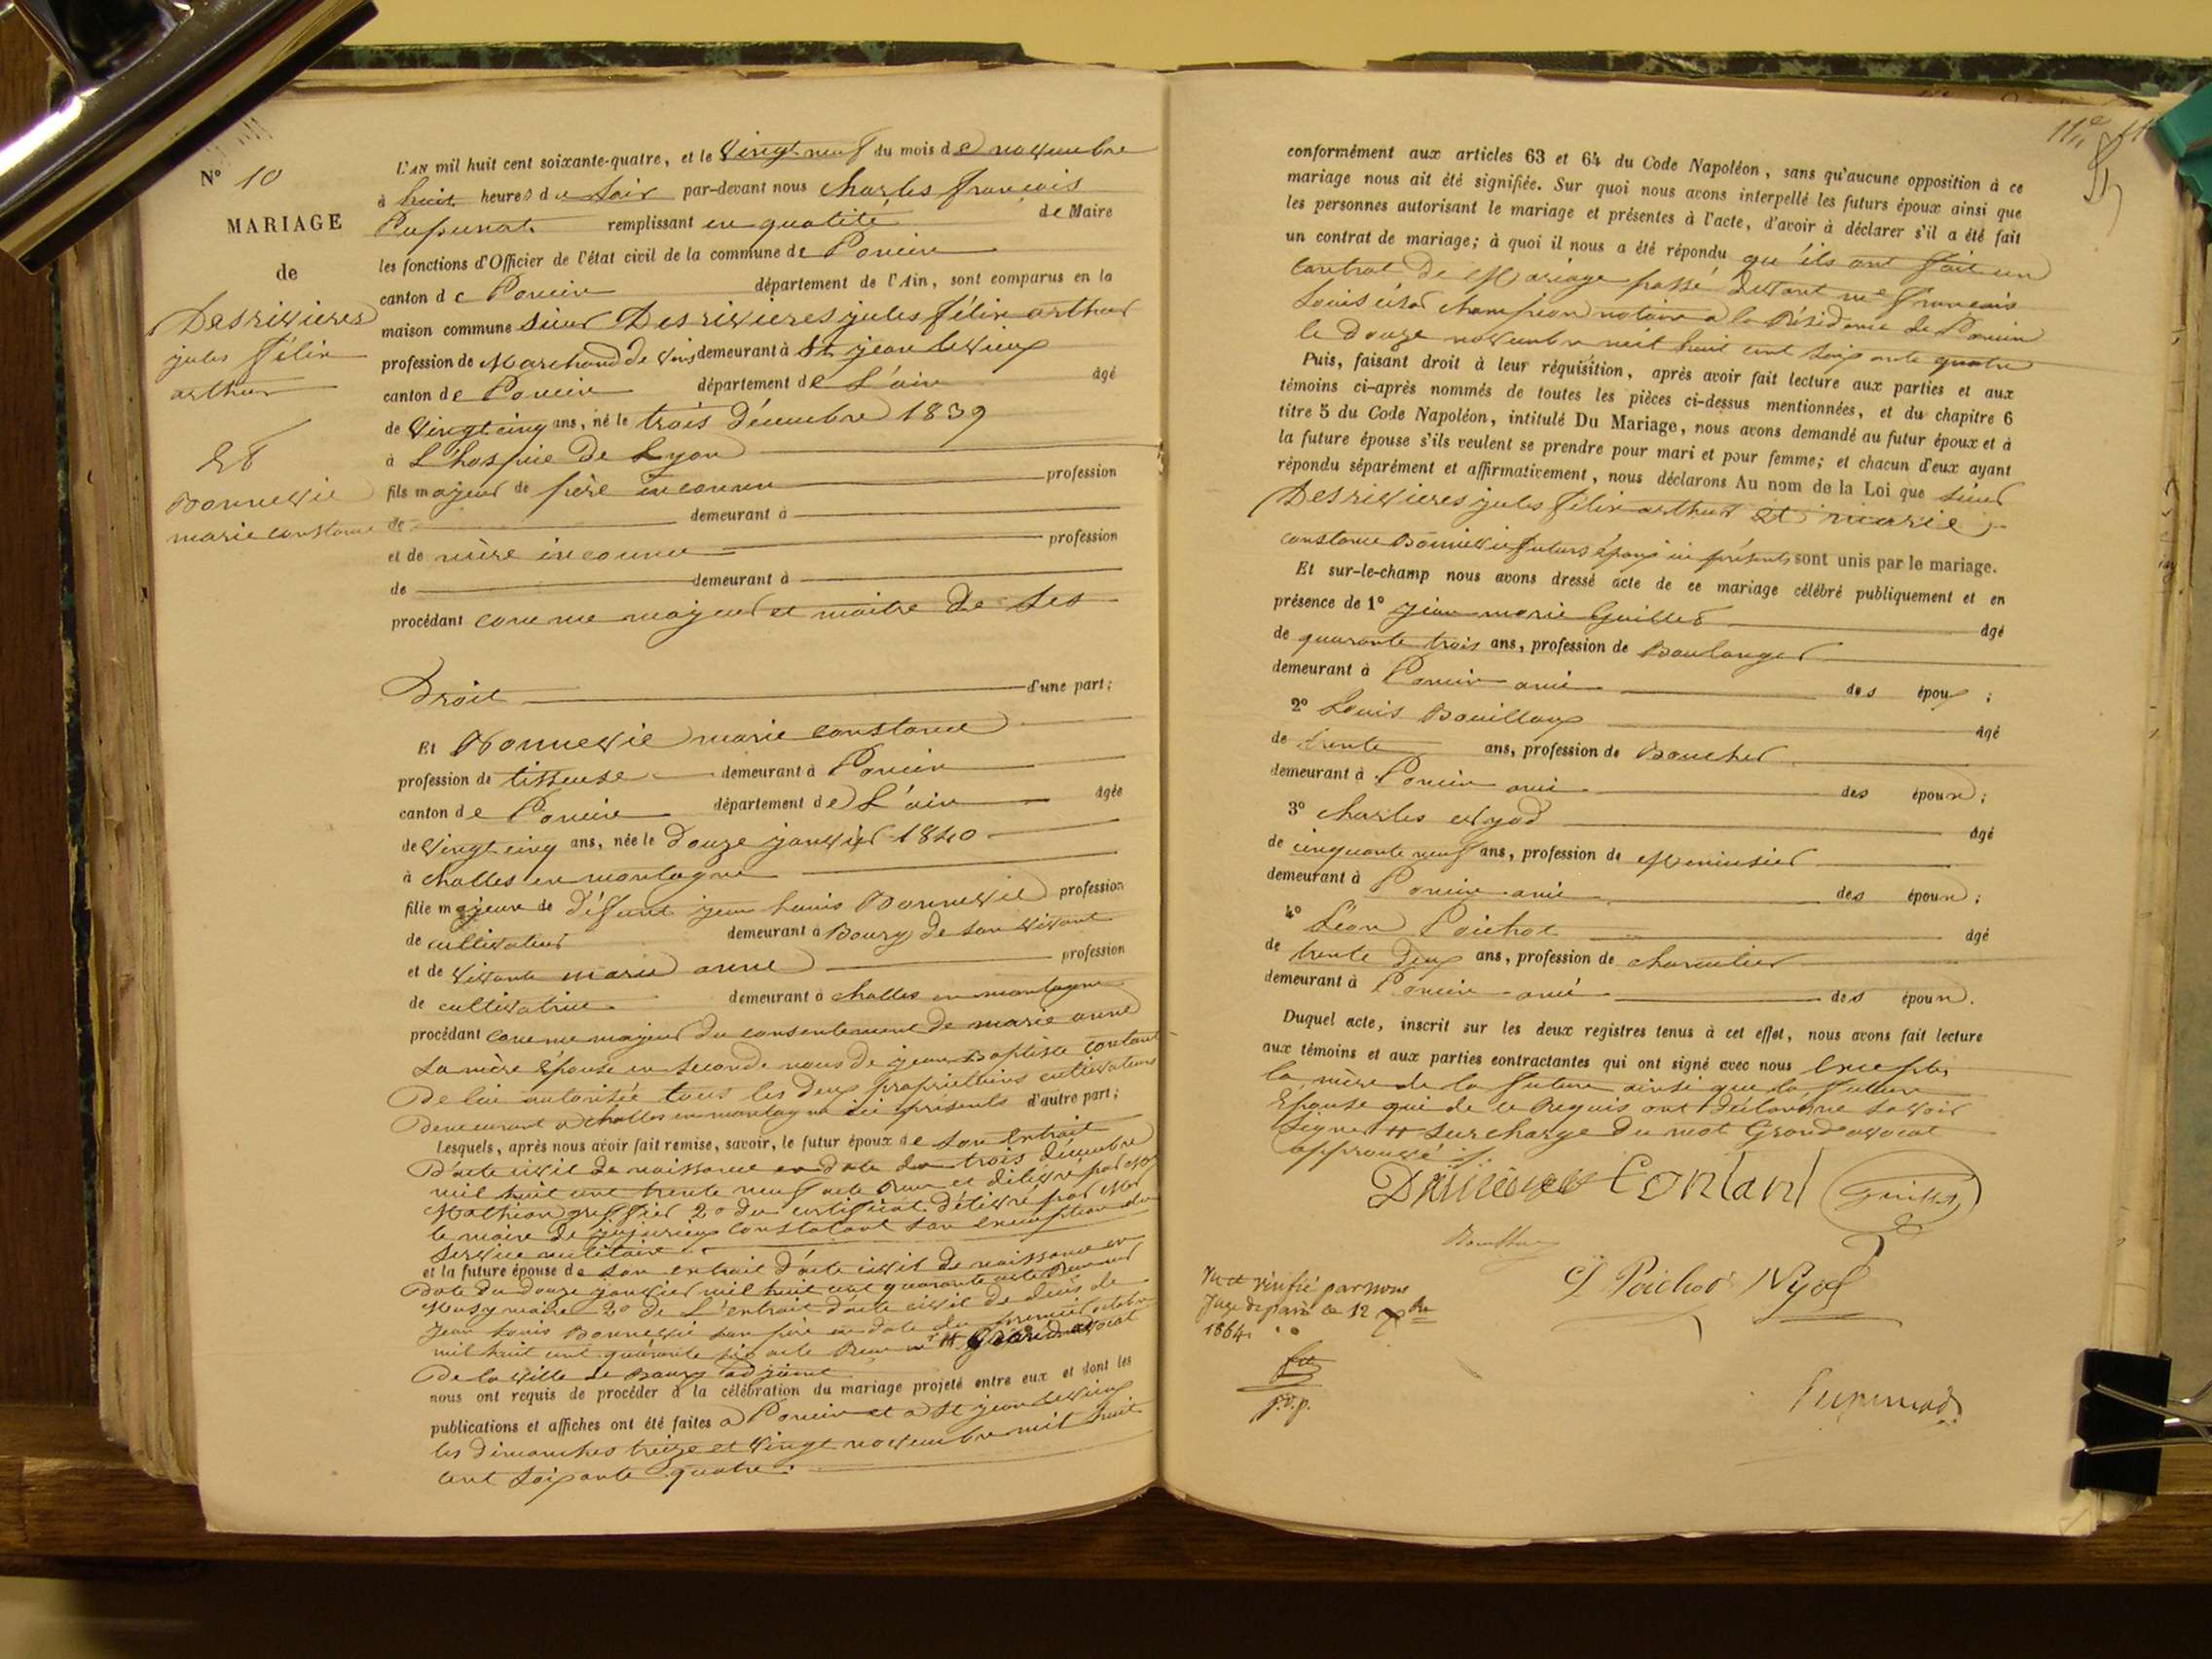 N° 10
MARIAGE
de
Desrivieres
jules félix
arthur
Et
Bonnevie
marie constance
L'AN mil huit cent soixante-quatre, et le vingt neuf du mois de novembre
à huit heures du soir par-devant nous Charles françois
remplissant en qualité de Maire
les fonctions d'Officier de l'état civil de la commune de Poncin
canton de Poncin département de l'Ain, sont comparus en la
maison commune sieur Desrivieres jules félix arthur
profession de Marchand de vins demeurant à St jean le vieux
canton de Poncin département de L'ain âgé
de vingt cinq ans, né le trois décembre 1839
à L'hospice De Lyon
fils majeur de père inconnu profession
de demeurant à
et de mère inconnue profession
de demeurant à
procédant comme majeur et maitre De ses
Droit d'une part;
Et Bonnevie marie constance
profession de tisseuse demeurant à Poncin
canton de Poncin département de L'ain âgée
de vingt cinq ans, née le Douze janvier 1840
à challes en montagne
fille majeure de défunt jean louis Bonnevie profession
de cultivateur demeurant à Bourg de son vivant
et de vivante marie anne profession
de cultivatrice demeurant à challes en montagne
procédant comme majeur du consentement de marie anne
sa mère Epouse en seconde noces de jean Baptiste contant
De lui autorisée tous les Deux propriétaires cultivateurs
Demeurant à challes en montagne ici présents d'autre part;
Lesquels, après nous avoir fait remise, savoir, le futur époux de son Extrait
D'acte civil de naissance en date du trois décembre
mil huit cent trente neuf acte Reçu et délivré par Mr
Mathieu greffier 2° du certificat délivré par Mr
le maire de jujurieux constatant son exemption du
service militaire
et la future épouse de son extrait d'acte civil de naissance en
Date du douze janvier mil huit cent quarante acte Reçu
maire 2° de L'extrait d'acte civil de décès de
Jean Louis Bonnevie son père en date du premier octobre
mil huit cent quarante six acte Reçu Mr Grand avocat
De la ville de Bourg adjoint
nous ont requis de procéder à la célébration du mariage projeté entre eux et dont les
publications et affiches ont été faites à Poncin et à St jean le vieux
les dimanches treize et vingt novembre mil huit
cent soixante quatre.
conformément aux articles 63 et 64 du Code Napoléon, sans qu'aucune opposition à ce
mariage nous ait été signifiée. Sur quoi nous avons interpellé les futurs époux ainsi que
les personnes autorisant le mariage et présentes à l'acte, d'avoir à déclarer s'il a été fait
un contrat de mariage; à quoi il nous a été répondu qu'ils ont fait un
contrat De Mariage passé Devant me françois
Louis césar champion notaire à la Résidence de Poncin
le Douze novembre mil huit cent soixante quatre
Puis, faisant droit à leur réquisition, après avoir fait lecture aux parties et aux
témoins ci-après nommés de toutes les pièces ci-dessus mentionnées, et du chapitre 6
titre 5 du Code Napoléon, intitulé Du Mariage, nous avons demandé au futur époux et à
la future épouse s'ils veulent se prendre pour mari et pour femme; et chacun d'eux ayant
répondu séparément et affirmativement, nous déclarons Au nom de la Loi que sieur
Desrivieres jules félix arthur Et marie
constance Bonnevie futurs époux ici présents sont unis par le mariage.
Et sur-le-champ nous avons dressé acte de ce mariage célébré publiquement et en
présence de 1° jean marie Guillet âgé
de quarante trois ans, profession de Boulanger
demeurant à Poncin ami des époux ;
2° Louis Bouilloux âgé
de trente ans, profession de Boucher
demeurant à Poncin ami des époux ;
3° charles Nyod âgé
de cinquante neuf ans, profession de Menuisier
demeurant à Poncin ami des époux ;
4° Léon Poichot âgé
de trente deux ans, profession de charcutier
demeurant à Poncin ami des époux .
Duquel acte, inscrit sur les deux registres tenus à cet effet, nous avons fait lecture
aux témoins et aux parties contractantes qui ont signé avec nous Exceptés
la mère de la future ainsi que la future
Epouse qui de ce Requis ont déclaré ne savoir
signer surcharge du mot Grand avocat
approuvé
Contant
Poichot Nyod
Vu et vérifié par nous
Juge de paix ce 12
1864
j. d. p.